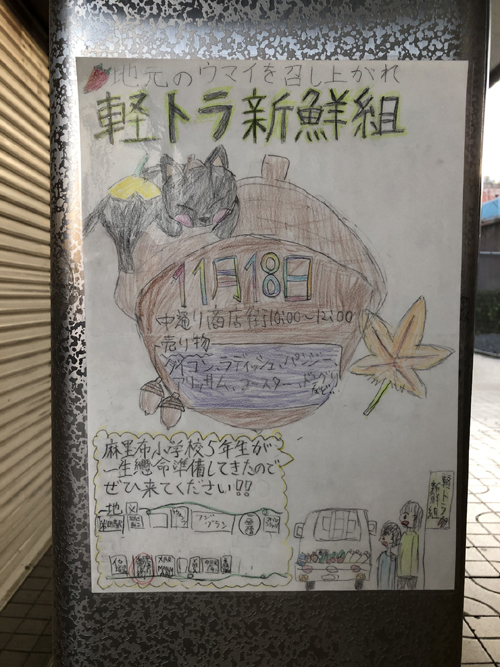 地元のウマイを召し上がれ
軽トラ新鮮組
11月18日
中通り商店街10:00〜12:00
売り物
ダイコン、ラディッシュ、パンジー
コースター、
など…
麻里布小学校5年生が
一生懸命準備してきたので
ぜひ来てください!!
地図
フジ
グラン
軽トラ
新鮮組